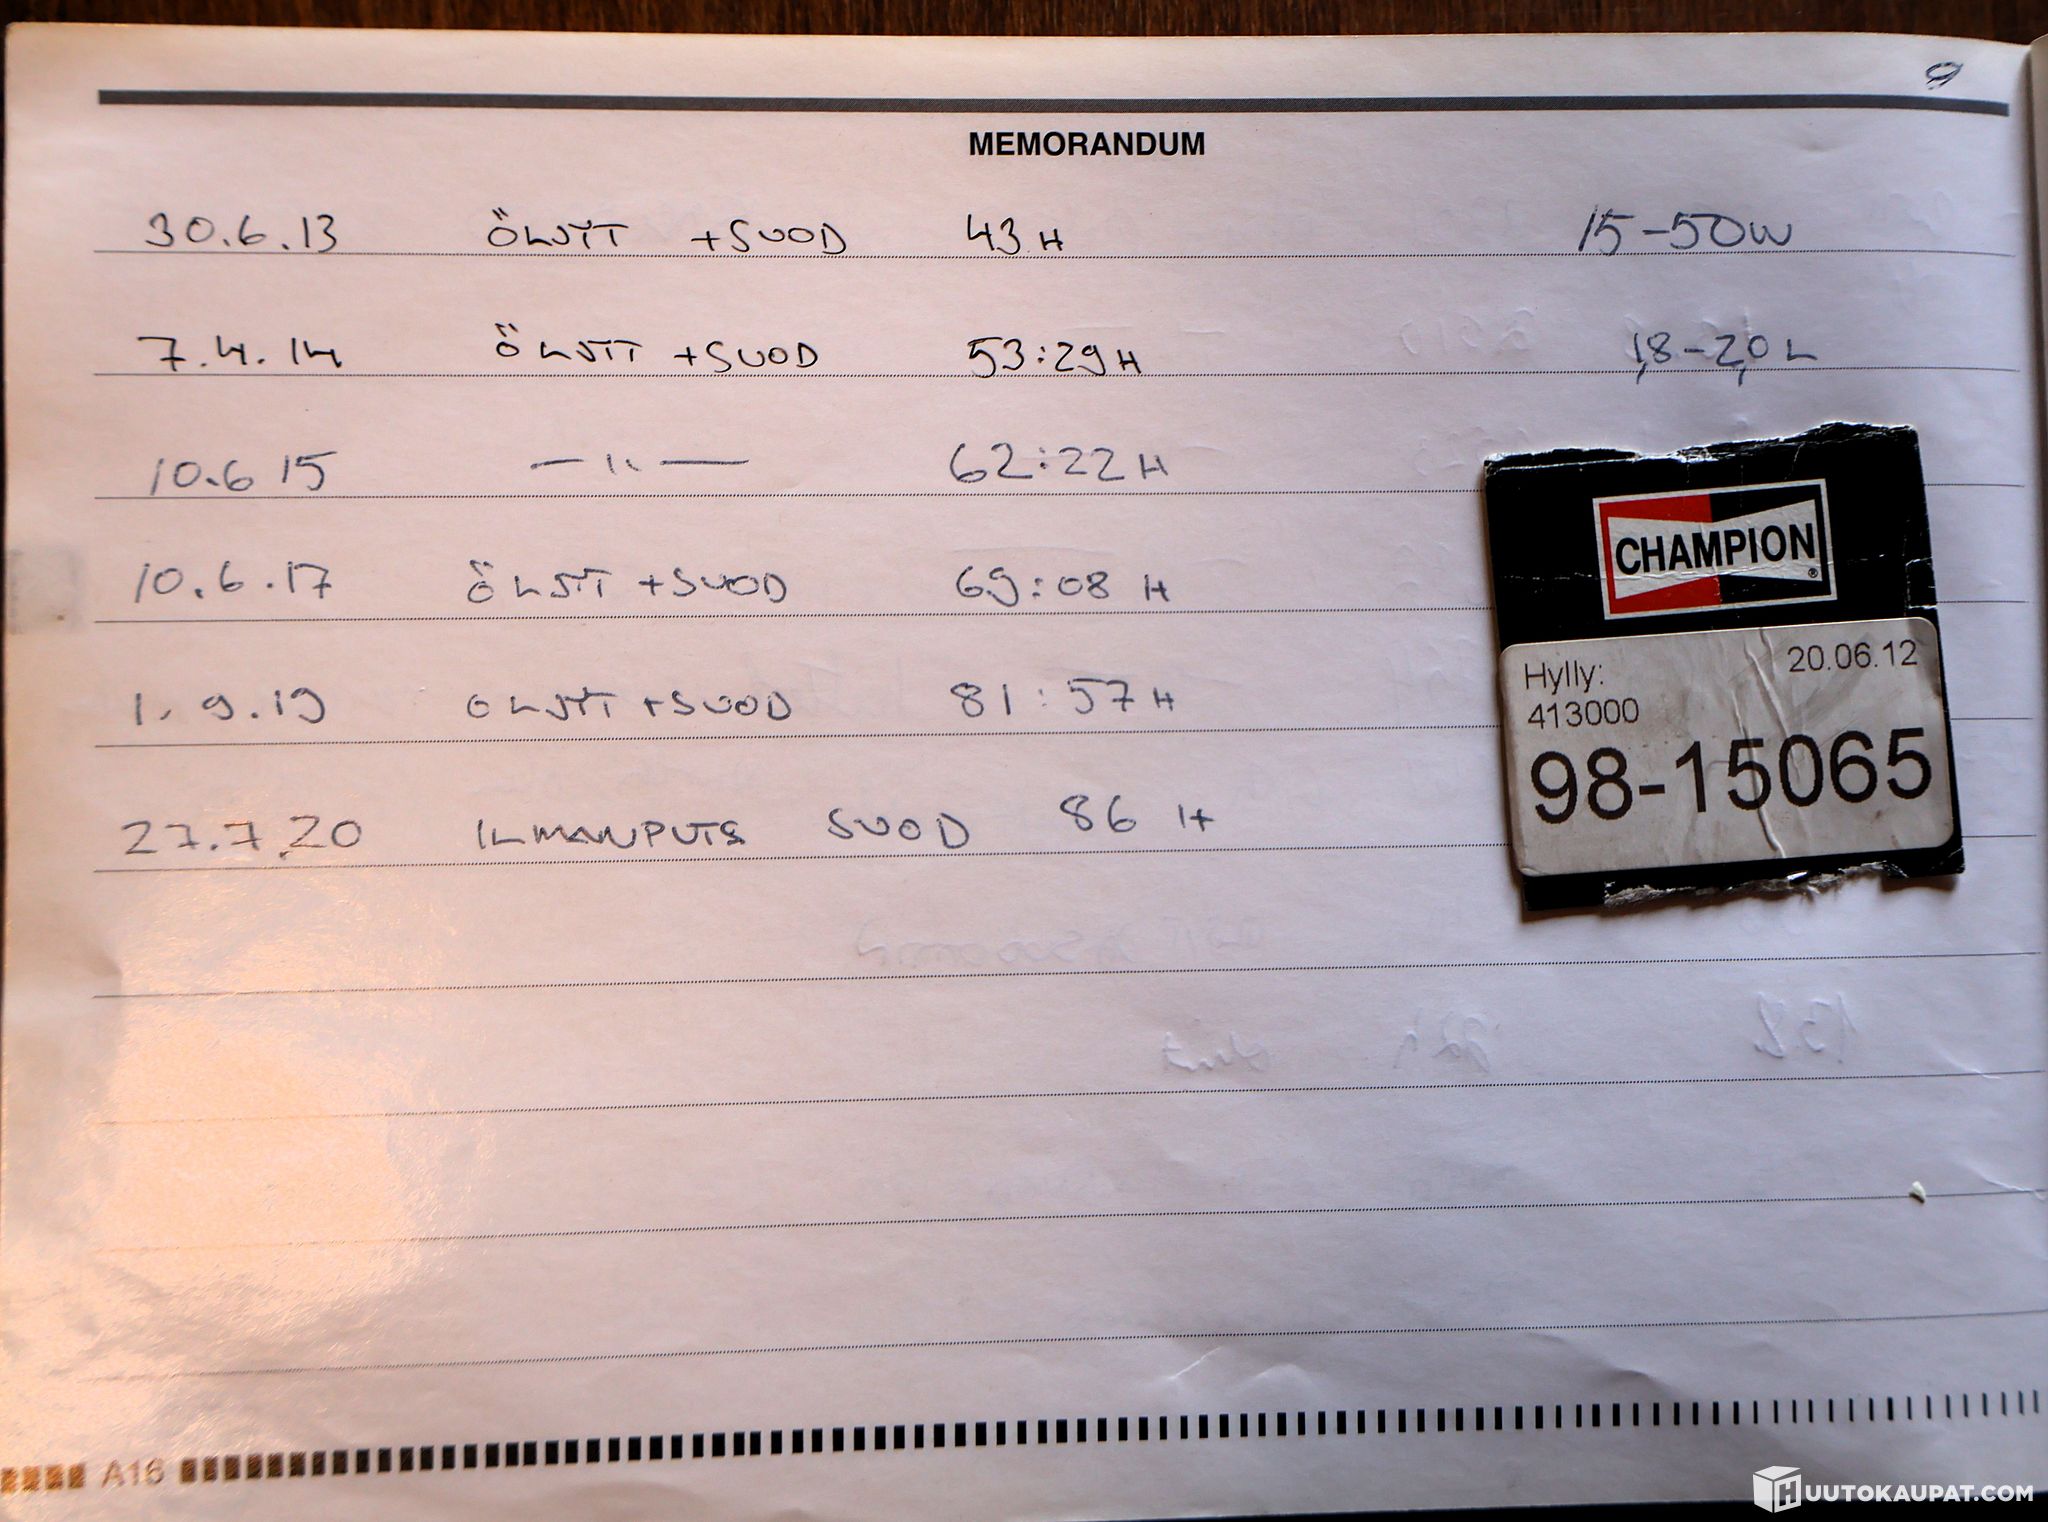 9
MEMORANDUM
30.6.13 ÖLJYT +SUOD 43 H 15-50W
7.4.14 ÖLJYT +SUOD 53:29 H 1,8-2,0 L
10.6 15 — ıı — 62:22 H
10.6.17 ÖLJYT +SUOD 69:08 H
1.9.19 ÖLJYT +SUOD 81:57 H
27.7.20 ILMANPUTS SUOD 86 H
CHAMPION®
Hylly: 20.06.12
413000
98-15065
A16
HUUTOKAUPAT.COM